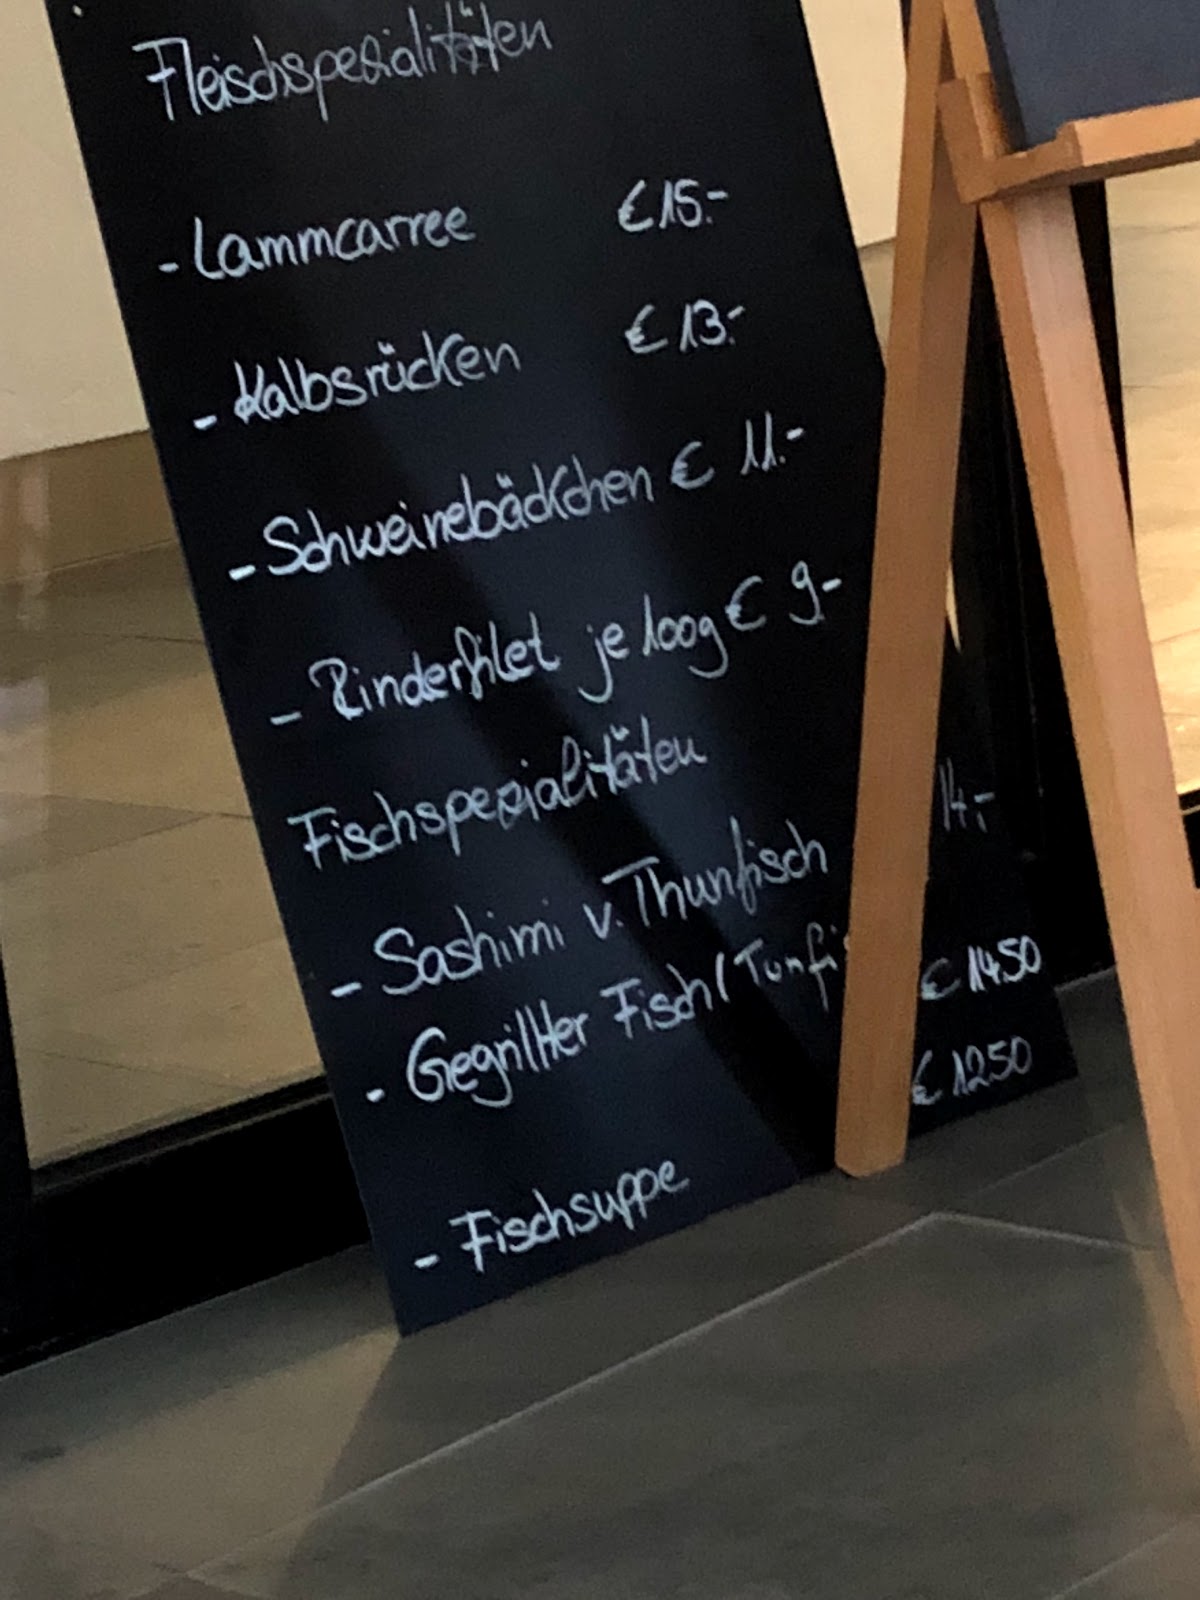 Fleischspezialitäten
- Lammcarree € 15.-
- Kalbsrücken € 13.-
- Schweinebäckchen € 11.-
- Rinderfilet je 100g € 9.-
Fischspezialitäten
- Sashimi v. Thunfisch 14,-
- Gegrillter Fisch (Tunfi € 14.50
- Fischsuppe € 12.50